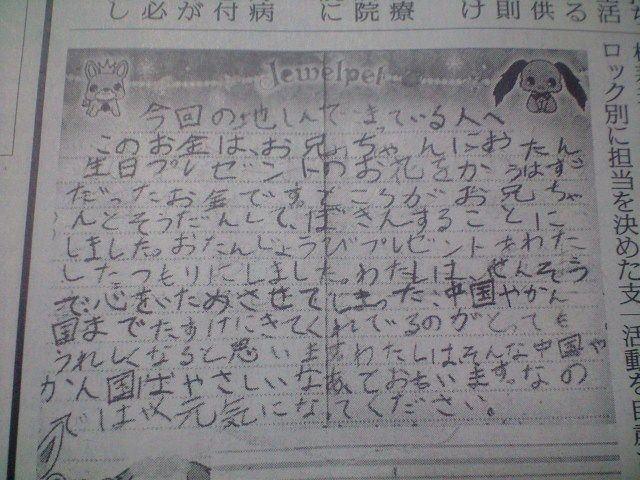 ロック別に担当を決めた支
Jewelpet
今回の地しんできている人へ
このお金は、お兄っちゃんにおたん
生日プレゼントのお花をかうはず
だったお金です。ところがお兄ちゃ
んとそうだんして、ぼきんすることに
しました。おたんじょうびプレゼントをわた
したつもりにしました。わたしは、せんそう
で心をいためさせてしまった、中国やかん
国までたすけにきてくれているのがとっても
うれしくなると思いますわたしはそんな中国や
かん国はやさしいなあておもいます。なの
では元気になってください。